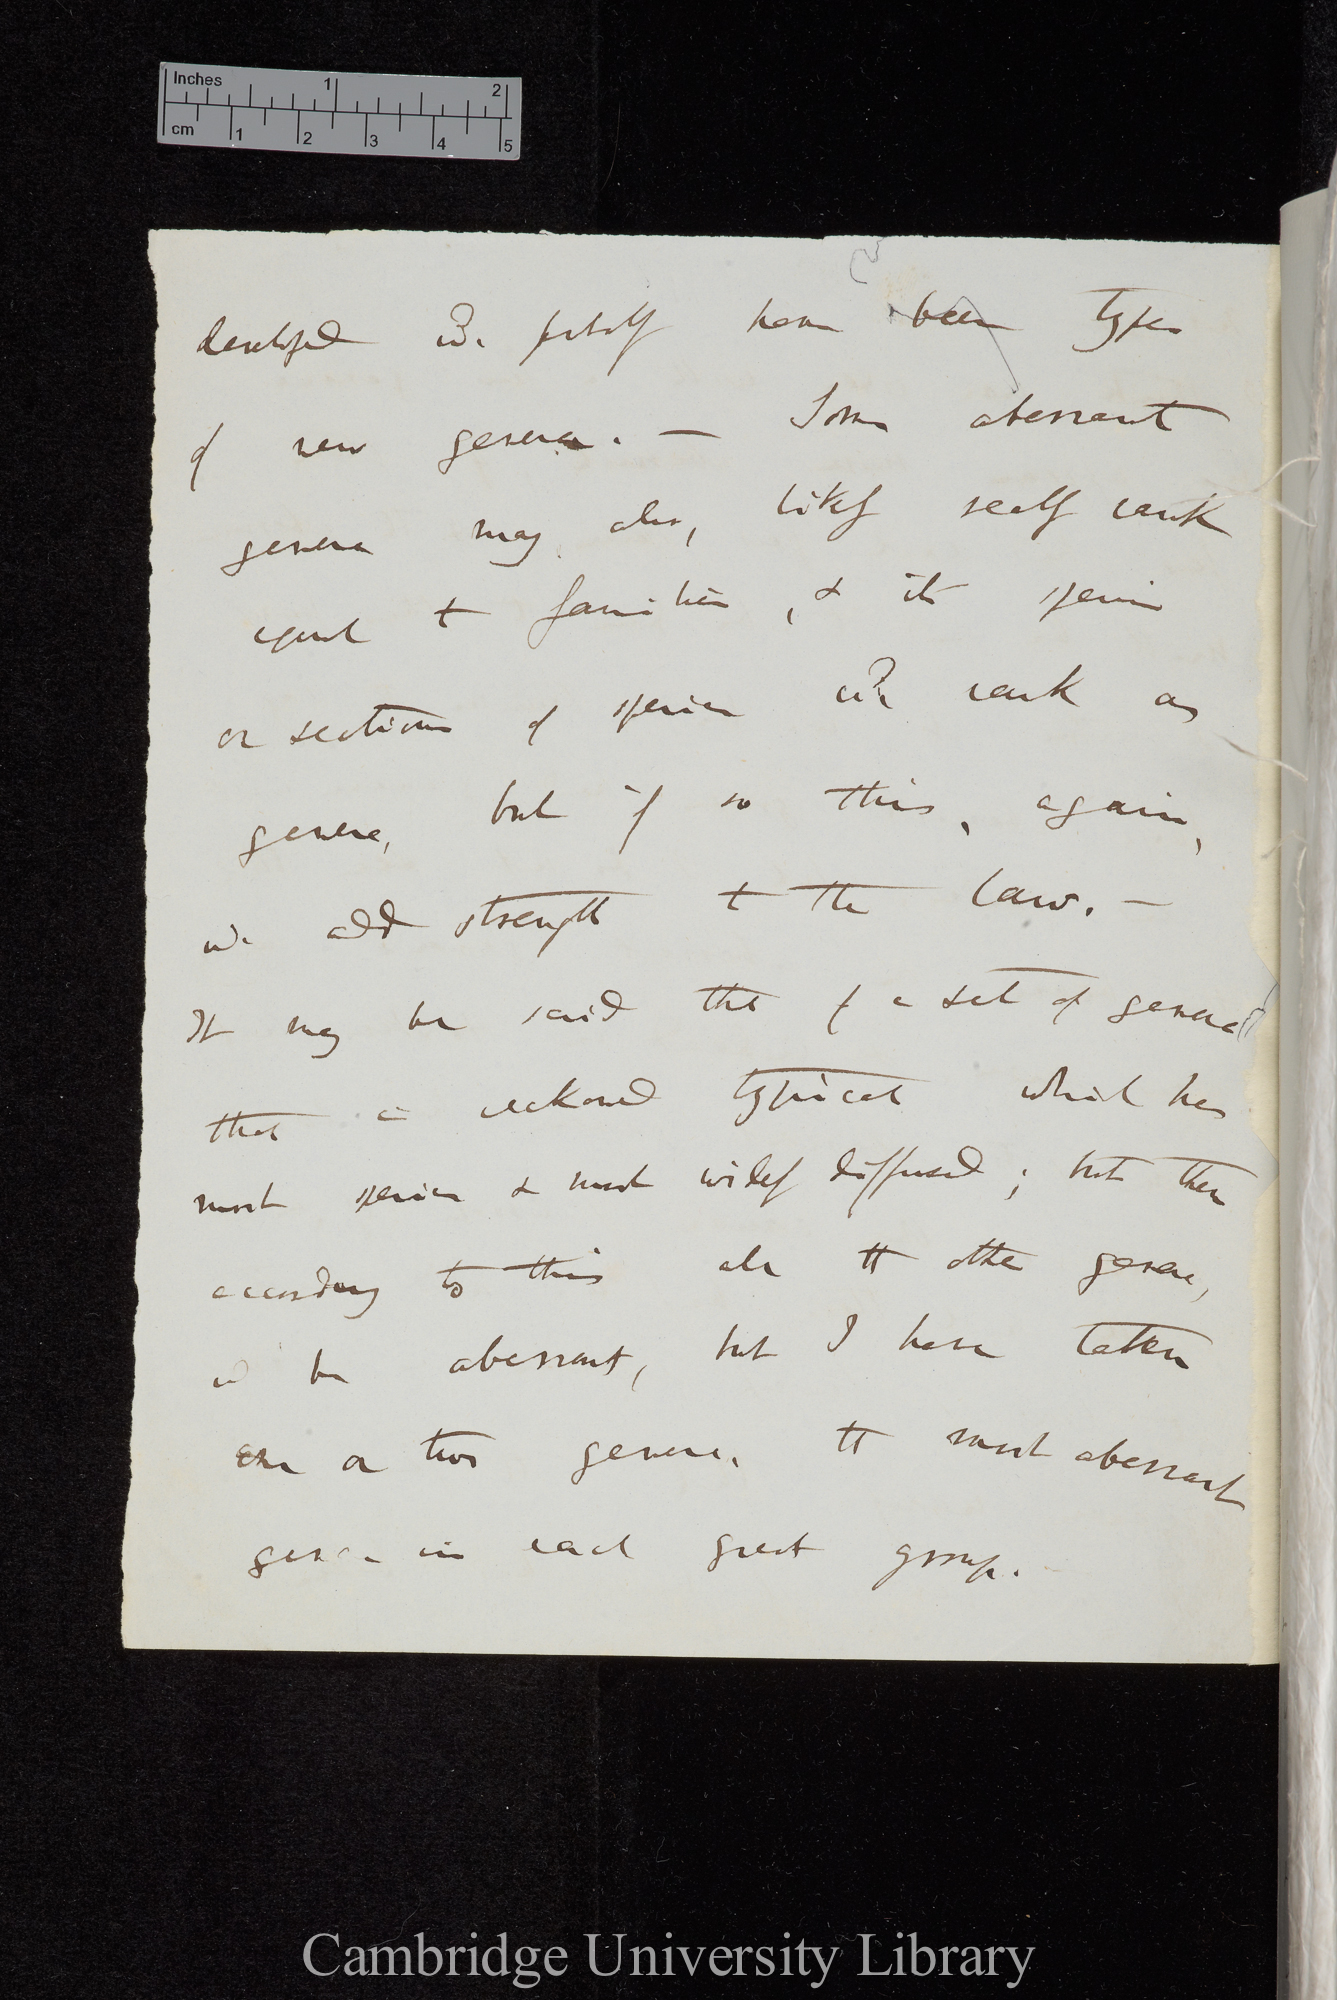 Inches 1 2
cm 1 2 3 4 5
developed wd. probably have been types
of new genera. — Some aberrant
genera may also, likely really rank
equal to families, & its species
or sections of species wd. rank as
genera, but if so this, again,
wd. add strength to the law. —
It may be said that of a set of genera
that is reckoned typical which has
most species & most widely diffused; but then
according to this all the other genera,
wd be aberrant, but I have taken
one or two genera. the most aberrant
genera in each great group.
Cambridge University Library